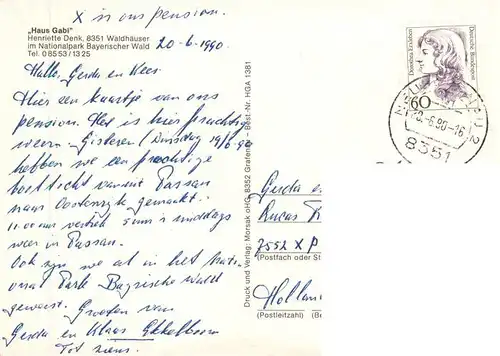 X is ons pension.
„Haus Gabi"
Henriette Denk, 8351 Waldhäuser
im Nationalpark Bayerischer Wald
Tel. 0 85 53 / 13 25
20-6-1990.
Hallo, Gerda en Kees
Hier een kaartje van ons
pension. Het is hier prachtig
weer. Gisteren (Dinsdag 19/6-90)
hebben we een prachtige
boottocht vanuit Passau
naar Oostenrijk gemaakt.
11.00 uur vertrek 5 uur 's middags
weer in Passau.
Ook zijn we al in het Nati-
onal Park Bayrische Wald
geweest. Groeten van
Gerda en Klaas
Tot ziens.
Druck und Verlag: Morsak oHG, 8352 Grafenau – Best.-Nr. HGA 1381
Dorothea Erxleben
Deutsche Bundespost
60
8351
Gerda en
Lucas
7552 X P
(Postfach oder St
Hollan
(Postleitzahl) (Be